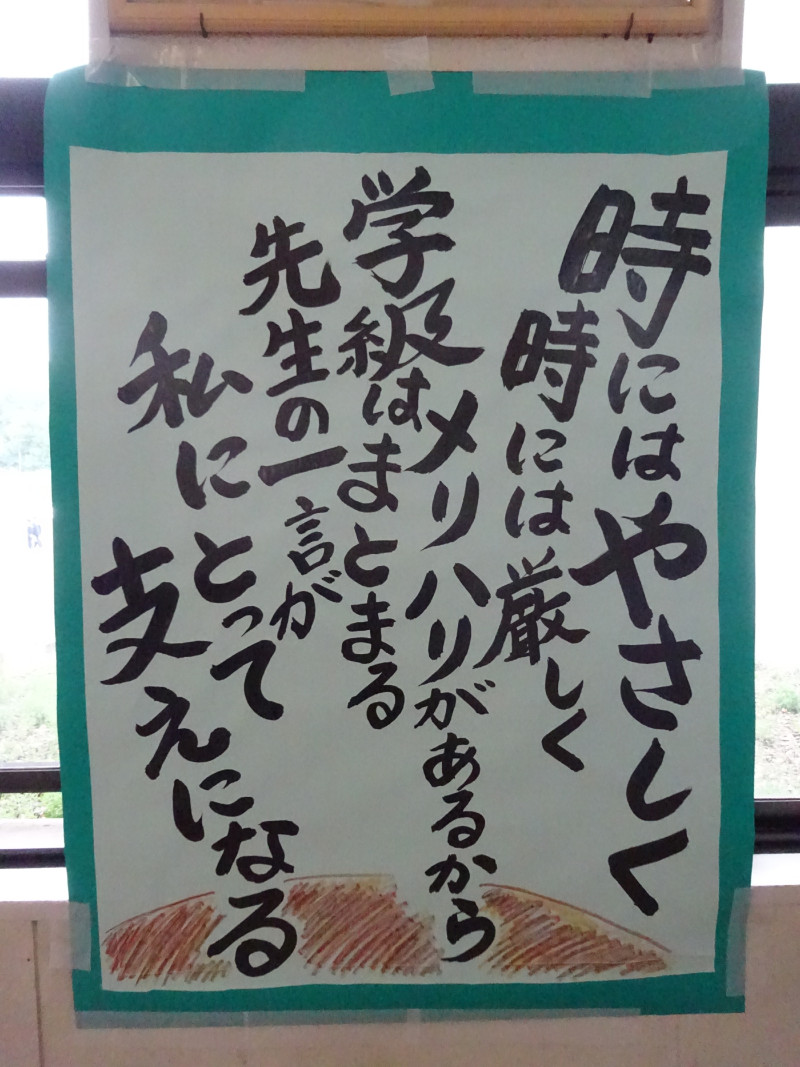 時にはやさしく
時には厳しく
メリハリがあるから
学級はまとまる
先生の一言が
私にとって
支えになる